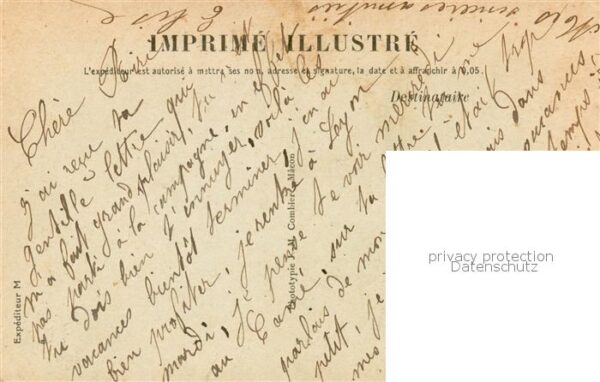 IMPRIMÉ ILLUSTRÉ
L'expéditeur est autorisé à mettre ses nom, adresse et signature, la date et à affranchir à 0.05
Destinataire
Chère
j'ai reçu ta
gentille lettre qui
m'a fait grand plaisir, tu
pas parti à la campagne, en effet
tu dois bien t'ennuyer, voilà les
vacances bientôt terminer j'en ai
bien profiter, je rentre à Lyon
mardi, je pense te voir mercredi
au sur ta lettre
parlais de mon était trop
petit, je dans
mes vacances,
temps
sincères amitiés
Expéditeur M
Phototypie X. M. Combier - Mâcon
privacy protection
Datenschutz